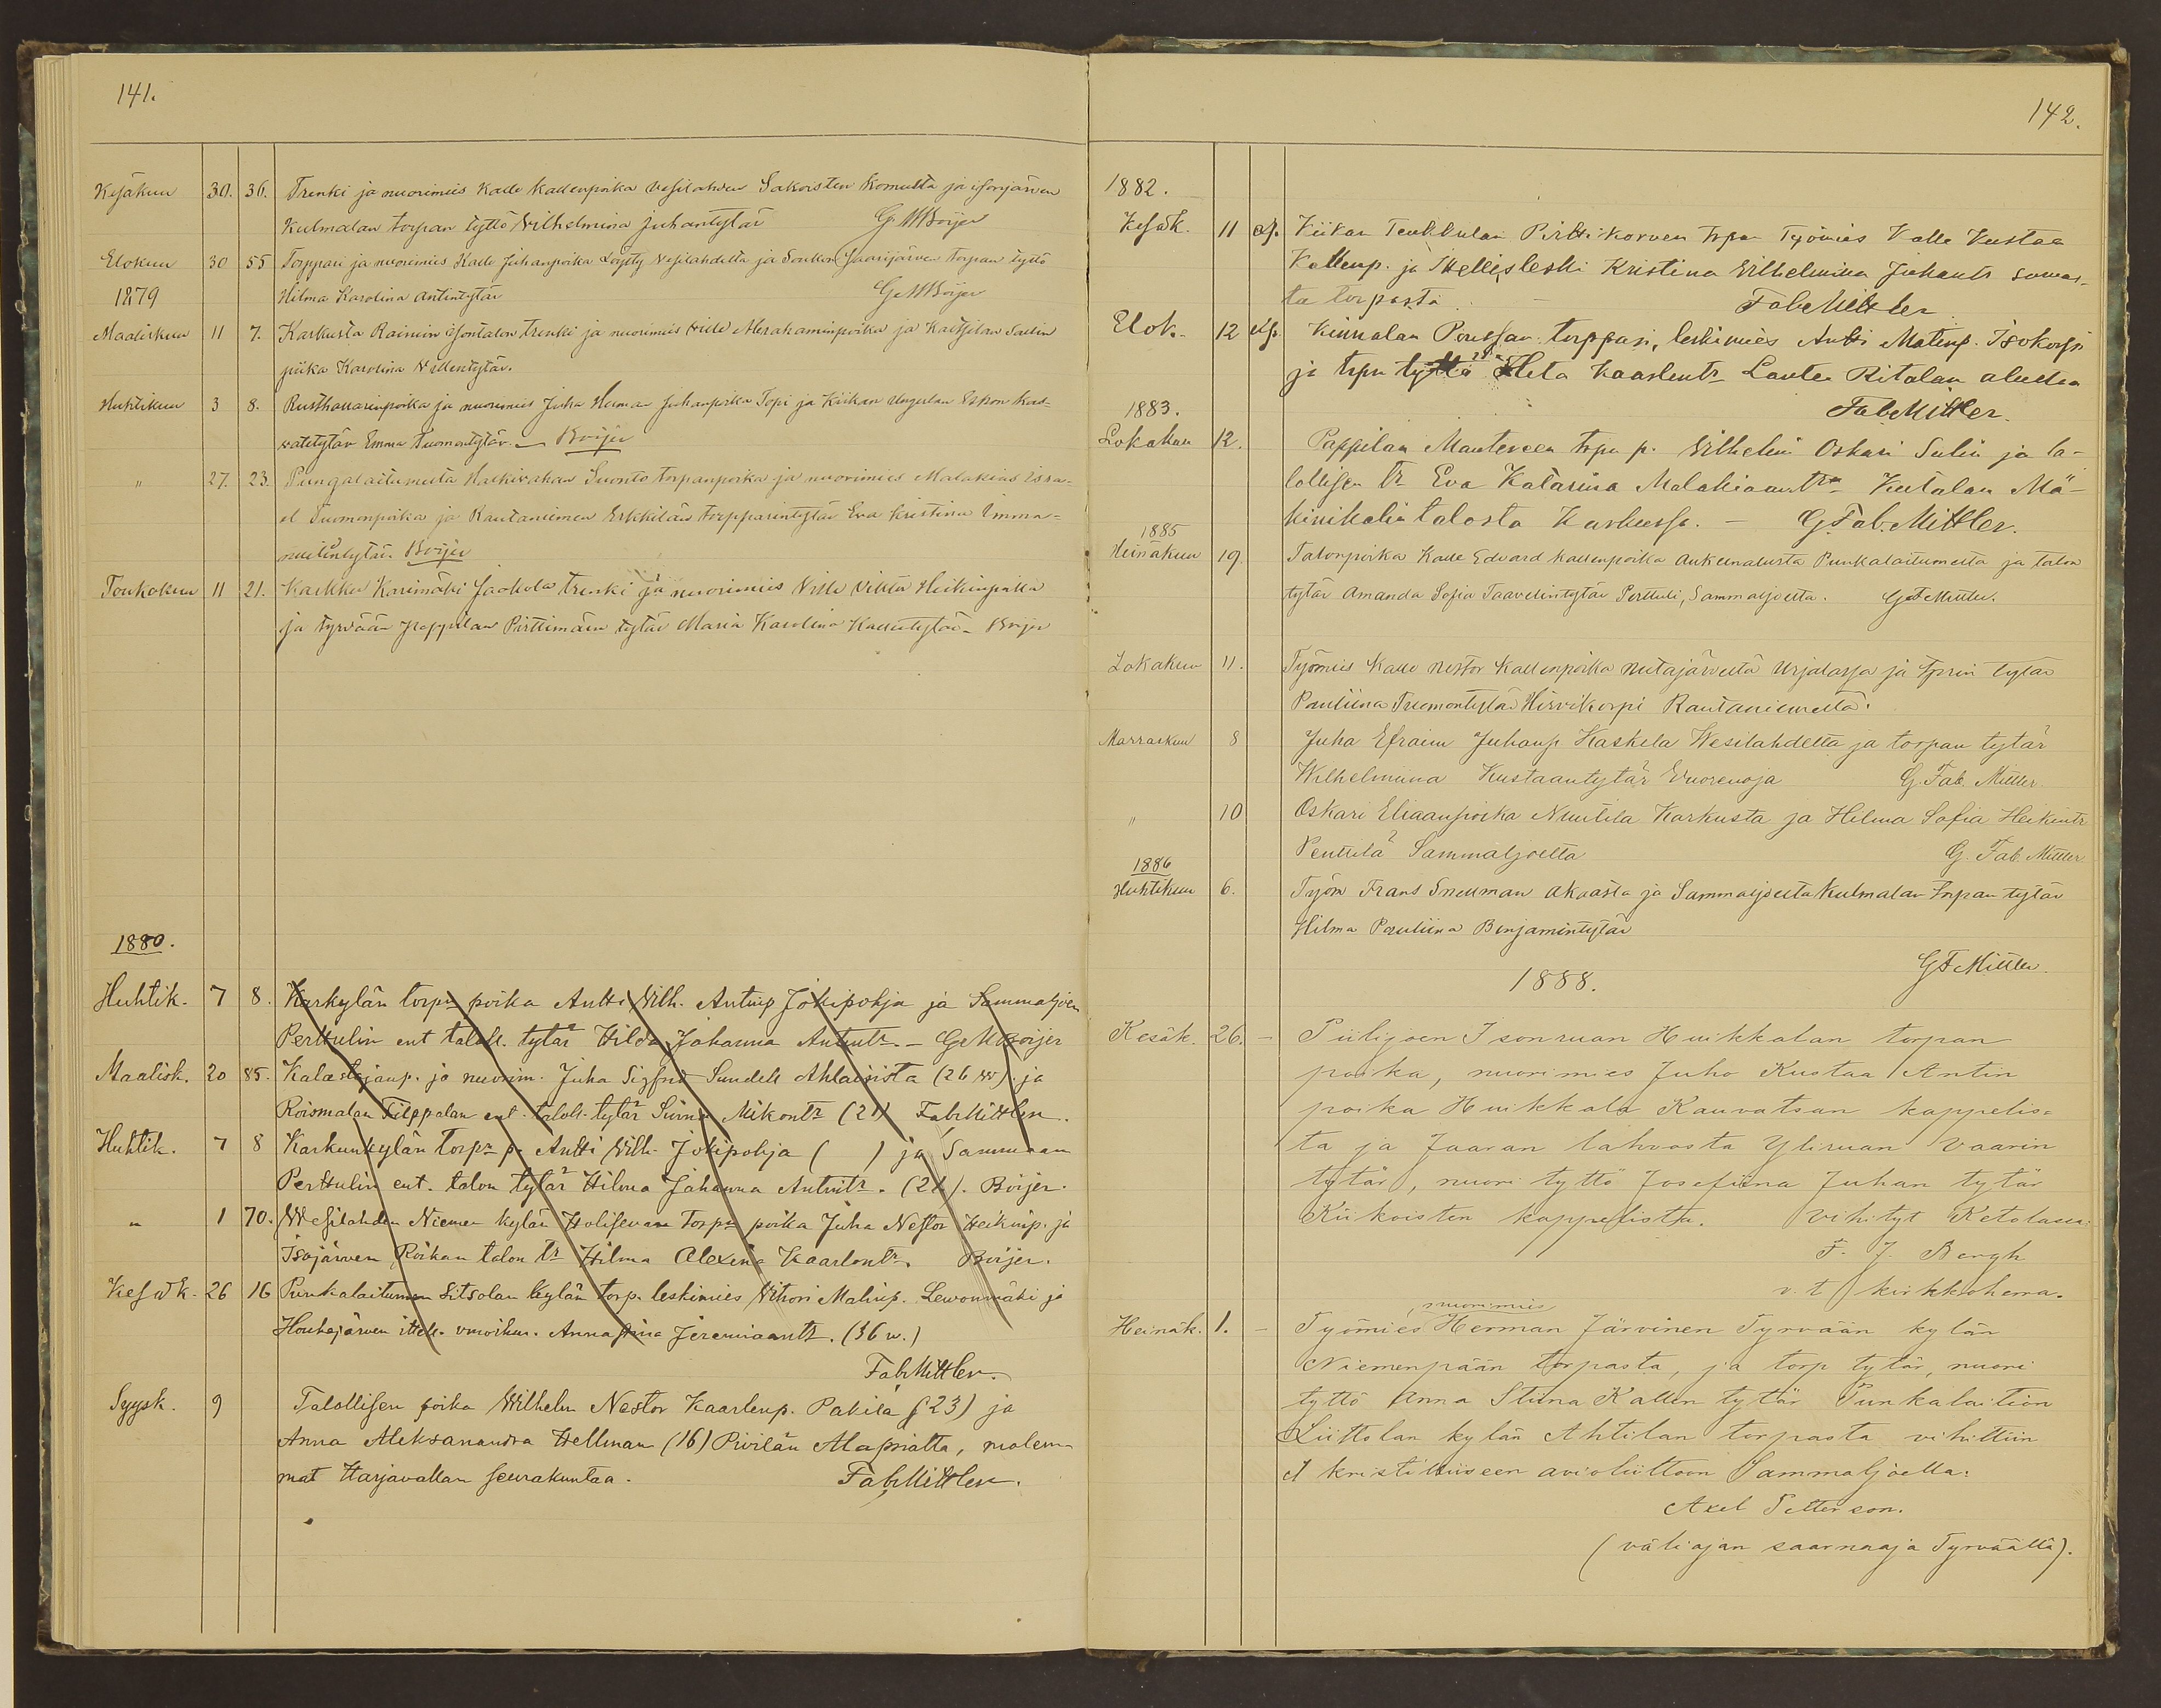 141.
Kesäkuu 30. 36. Trenki ja nuorimies Kalle Kallenpoika Vesilahden Sakoisten Komulta ja isonjärven
Kulmalan torpan tyttö Vilhelmina Juhantytär G. M Boijer
Elokuu 30 55 Torppari ja nuorimies Kalle Juhanpoika Löytty Vesilahdelta ja Soukon Haarijärven torpan tyttö
1879 Hilma Karolina Antintytär G M Boijer
Maaliskuu 11 7. Karkusta Rainion Isontalon trenki ja nuorimies Ville Abrahaminpoika ja Salin
piika Karolina Villentytär.
Huhtikuu 3 8. Rusthollarinpoika ja nuorimies Juha Herman Juhanpoika Topi ja Kiikan Ungerlan Eskon kas-
vatetytär Emma Tuomontytär. Boijer
" 27. 23. Pungalaitumelta Haskivahan Suonto torpanpoika ja nuorimies Malakias Isra-
el Tuomonpoika ja Rautaniemen Erkkilän torpparintytär Eva Kristina Imma-
nuelintytär. Boijer
Toukokuu 11 21. Kaukka Karimäki Jaakola trenki ja nuorimies Ville Viktor Heikinpoika
ja Tyrvään Pappilan Pirttimäen tytär Maria Karolina Kallentytär - Boijer
1880.
Huhtik. 7 8. Karkylän torpn poika Antti Vilh. Antinp Jokipohja ja Sammaljoen
Perttulin ent taloll. tytär Hilda Johanna Antintr. - G M Boijer
Maalisk. 20 85. Kalastajanp. ja nuorim. Juha Sigfrid Sundell Ahlaisista (26 vv) ja
Roismalan Tilppalan ent. taloll. tytär Miikontr (21) Fab. Mittler.
Huhtik. 7 8 Karkunkylän torpn p. Antti Vilh. Jokipohja ( ) ja Sammaan
Perttulin ent. talon tytär Hilma Johanna Antintr. (21). Boijer.
" 1 70. Wesilahden Niemen kylän torpn poika Juha Nestor Heikinp. ja
Isojärven Roikan talon tr Hilma Alexina Kaarlontr. Boijer.
Kesäk. 26 16 Punkalaitumen Sitsolan kylän torp. leskimies Vihtori Matinp. Lewonmäki ja
Houhajärven ittell. Anna Jeremiaantr. (36 w.)
Fab. Mittler.
Syysk. 9 Talollisen poika Wilhelm Nestor Kaarlenp. Pakila (23) ja
Anna Aleksanandra Hellman (16) Pirilän Alapialta, molem-
mat Harjavallan seurakuntaa. Fab. Mittler.
142.
1882.
Kesäk. 11 Kiikan Teukkulan Pirttikorven trpn Työmies Kalle Kustaa
Kallenp. ja Itsellisleski Kristina Vilhelmina Juhantr samas-
ta torpasta. Fab. Mittler
Elok. 12 Kinnalan Poussan torppari, leskimies Antti Matinp. Isokorpi
ja trpn tyttö Heta Kaarlentr Lautee Ritalan alustaa
1883. Fab. Mittler.
Lokakuu 12. Pappilan Manteren trpn p. Vilhelm Oskari Salin ja ta-
lollisen tr Eva Katarina Malakiaantr Kutalan Mä-
kinikolin talosta Karkussa. - G. Fab. Mittler.
1885
Heinäkuu 19 Talonpoika Kalle Edvard Kallenpoika Punkalaitumelta ja talon
tytär Amanda Sofia Taavetintytär Perttuli, Sammaljoelta. G F Mittler.
Lokakuu 11. Työmies Kalle Nestor Kallenpoika Nutajärveltä Urjalassa ja tprin tytär
Pauliina Tuomontytär Hirvikorpi Rautaniemeltä.
Marraskuu 8 Juha Efraim Juhanp Kaskela Wesilahdelta ja torpan tytär
Wilhelmiina Kustaantytär Vuorenoja G. Fab. Mittler.
" 10 Oskari Eliaanpoika Nuutila Karkusta ja Hilma Sofia Heikintr
Penttilä Sammaljoelta G. Fab. Mittler
1886
Huhtikuu 6. Työm Frans Snellman Akaasta ja Sammaljoelta Kulmalan trpan tytär
Hilma Pauliina Benjamintytär
G F Mittler.
1888.
Kesäk. 26. - Piilijoen Isonruan Huikkalan torpan
poika, nuorimies Juho Kustaa Antin
poika Huikkala Kauvatsan kappelis-
ta ja Jaaran lahvosta Yliruan vaarin
tytär, nuori tyttö Josefiina Juhan tytär
Kiikoisten kappelista. Vihityt Ketolassa
F. J. Bergh
v. t. kirkkoherra.
, nuorimies
Heinäk. 1. - Työmies Herman Järvinen Tyrvään kylän
Niemenpään torpasta, ja torp. tytär, nuori
tyttö Anna Stiina Kallen tytär Punkalaition
Liittolan kylän Ahtilan torpasta vihittiin
kristilliseen avioliittoon Sammaljoella:
Axel Petterson.
(väliajan saarnaaja Tyrväällä).